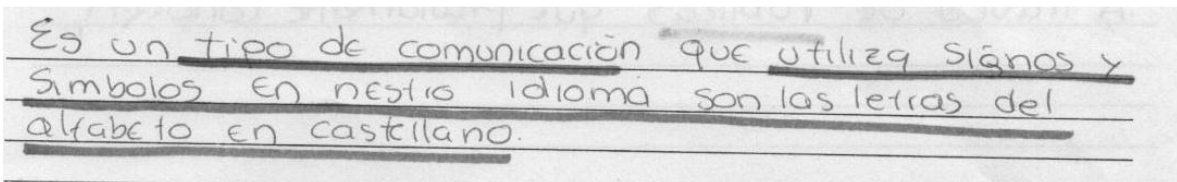 Es un tipo de comunicación que utiliza signos y
Simbolos en nestro idioma son las letras del
alfabeto en castellano.